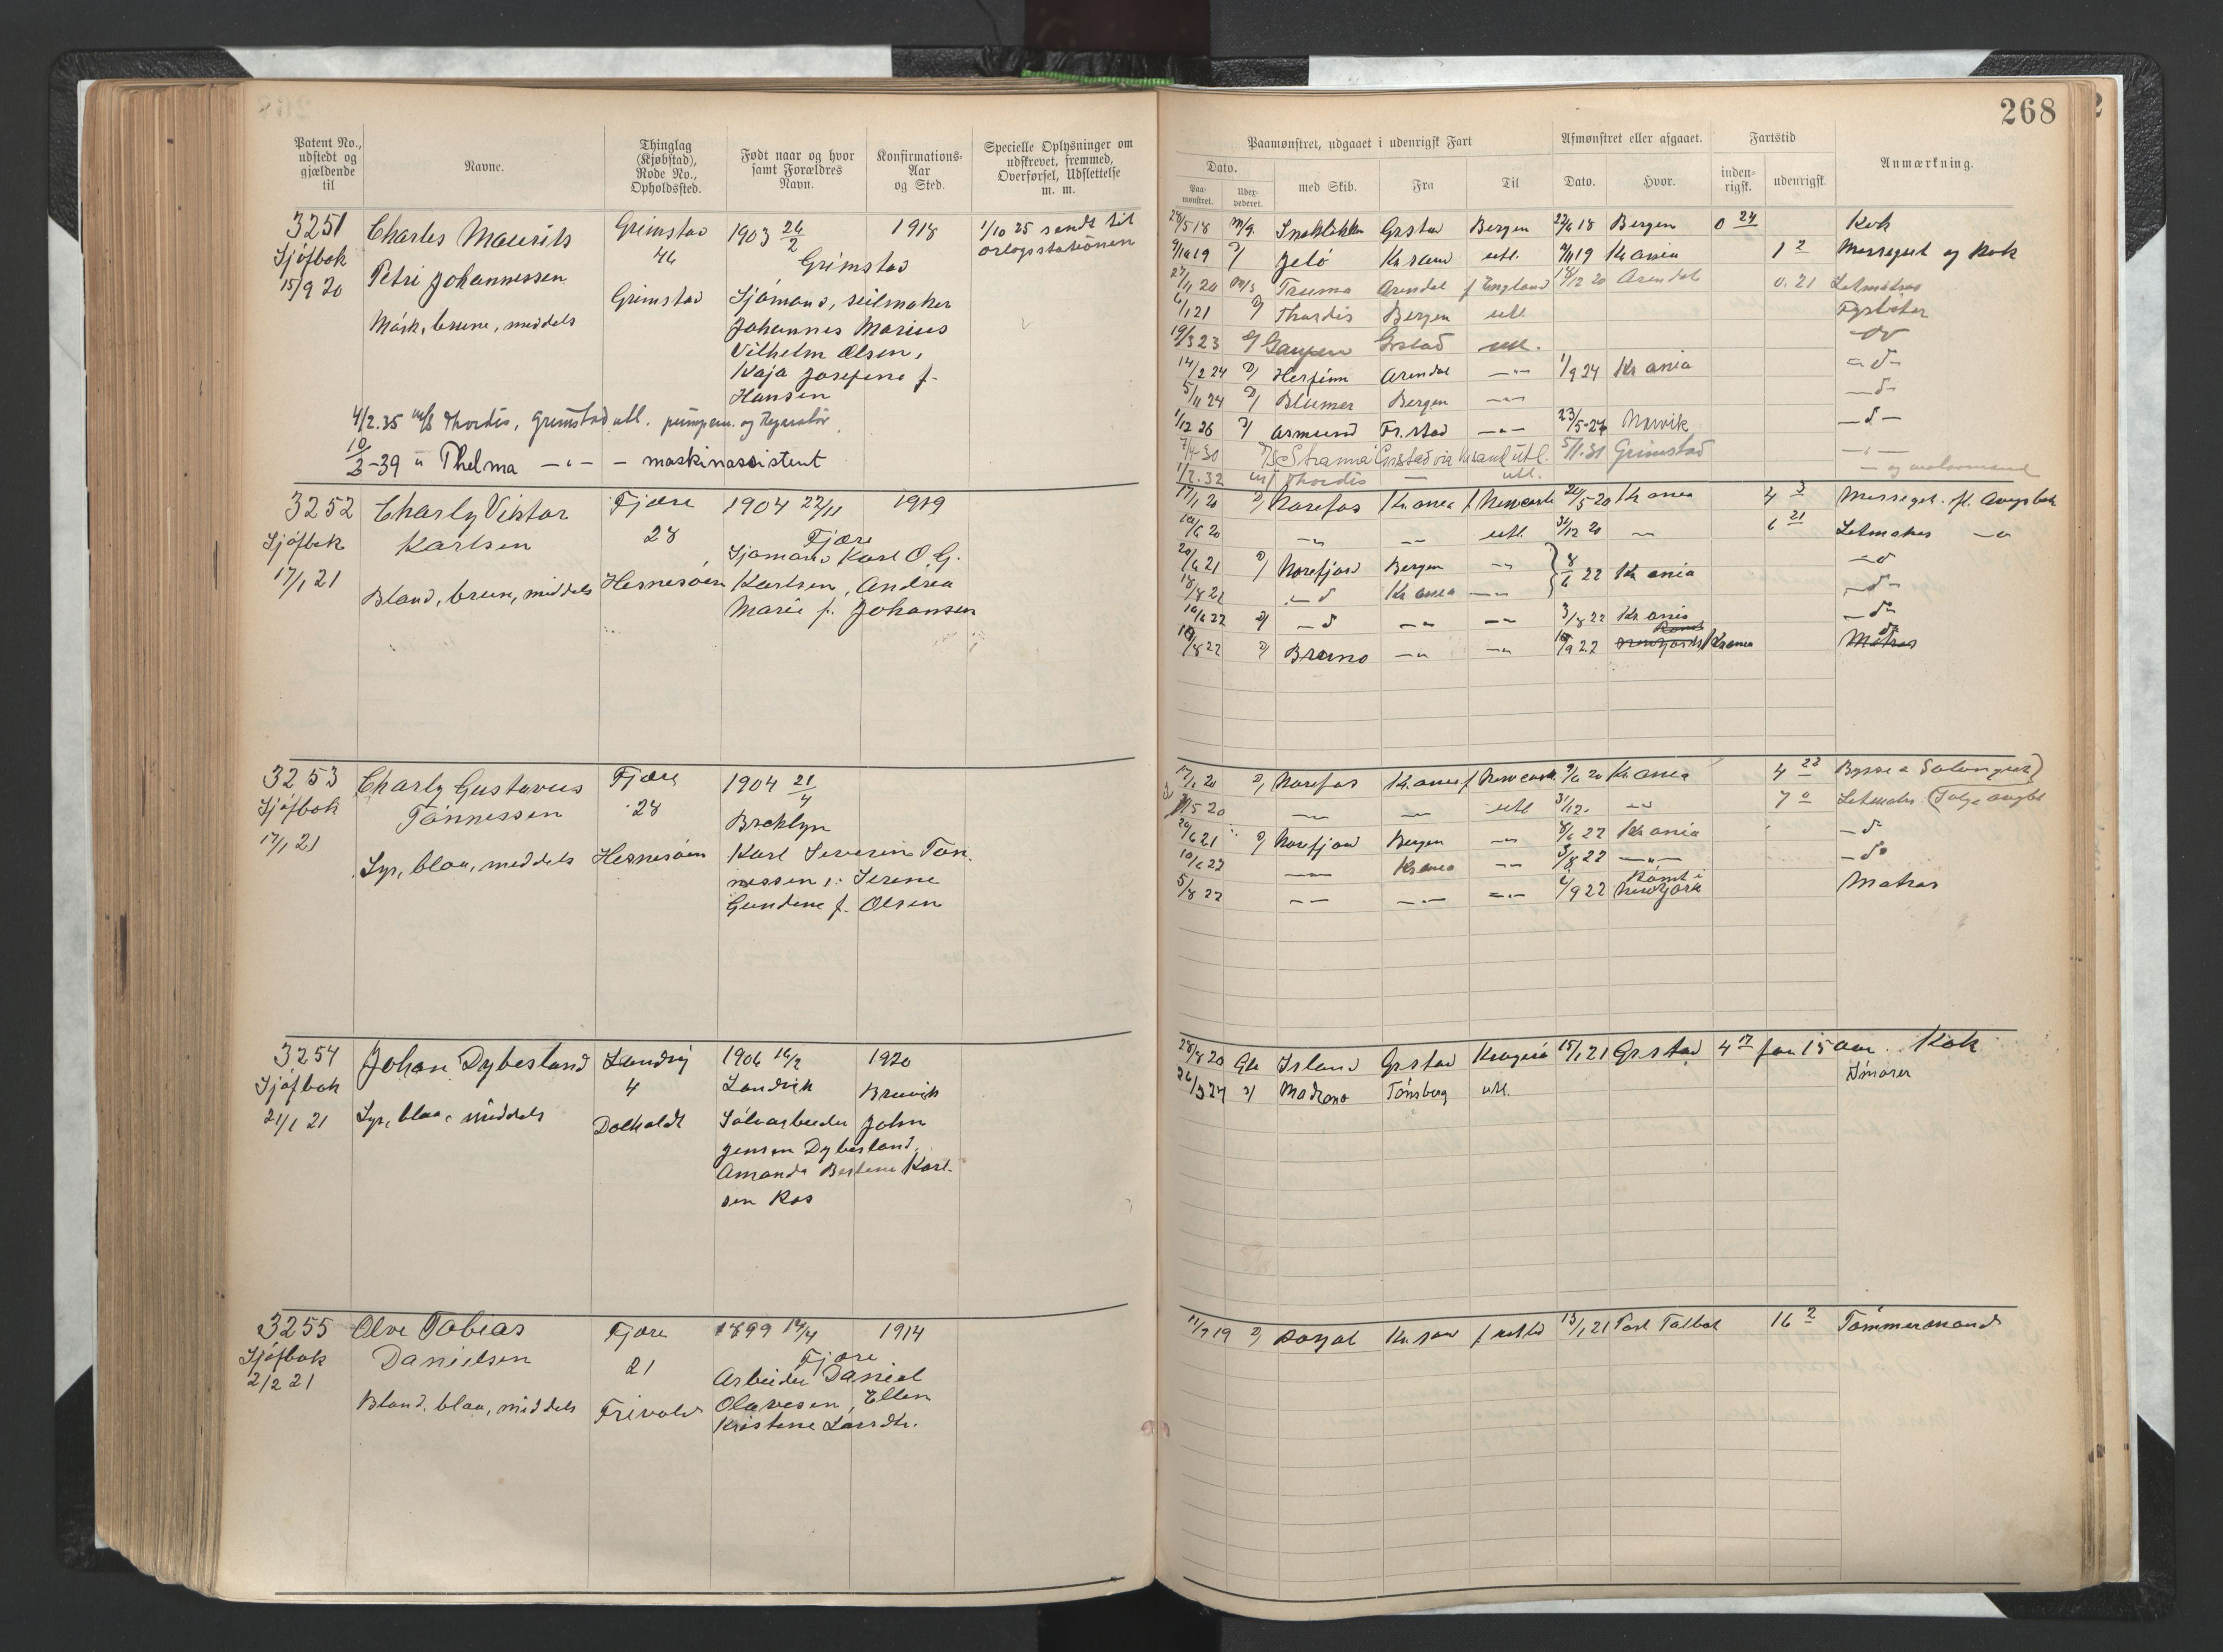 268
Patent No., udstedt og gjældende til
Navne.
Thinglag (Kjøbstad), Rode No., Opholdssted.
Født naar og hvor samt Forældres Navn.
Konfirmations-Aar og Sted.
Specielle Oplysninger om udskrevet, fremmed, Overførsel, Udslettelse m. m.
Paamønstret, udgaaet i udenrigsk Fart
Afmønstret eller afgaaet.
Fartstid
Anmærkning.
Dato.
Paa-mønstret.
med Skib.
Fra
Til
Dato.
Hvor.
inden-rigsk.
udenrigsk.
3251
Sjöfbok
15/9 20
Charles Maurits
Petri Johannessen
Mörk, brune, middels
Grimstad
46
Grimstad
1903 26/2
Grimstad
Sjömand, seilmaker
Johannes Marius
Vilhelm Olsen,
Kaja Josefine f.
Hansen
1918
1/10 25 sendt til
orlogsstationen
4/2.35 m/s Thordis, Grimstad utl. pumpem. og Reparatör
10/3-39 " Thelma — " — – maskinassistent
28/5 18 Grstad Bergen 22/6 18 Bergen 0 24 Kok
Jelö Kr.sand utl. Kr ania 1 2 Messegut og Kok
Trauma Arendal f England 18/12 20 Arendal 0.21 Letmatros
6/1 21 Thordis Bergen utl. Fyrböter
19/3 23 Grstad utl. — do
14/2 24 Herfinn Arendal — " — 1/9 24 Kr ania — d —
5/11 24 Blumer Bergen — " — — d —
1/12 26 Asmund Fr.stad — " — 23/5-27 Narvik — d —
7/4-30 Strama Grstad via Kr.sand utl. 5/1.31 Grimstad — " —
1/2.32 m/s Thordis — utl. — og motormand
3252
Sjöfbok
17/1 21
Charly Viktor
Karlsen
Bland, brun, middels
Fjære
28
Hesnesöen
1904 22/11
Fjære
Sjömand Karl O. G.
Karlsen, Andrea
Marie f. Johansen
1919
17/1 20 Norefos Kr. ania f Newcastle 20/5 20 Kr ania 4 3 Messegut.
10/6 20 — " — — " — utl 31/12 20 — " — 6 21 Letmatros — o
20/6 21 Norefjord Bergen — " — 8/6 22 Kr ania — d
18/8 21 — d Kr ania — " — — d —
10/6 22 — d — " — — " — 3/8 22 Kr. ania — d —
10/8 22 Bruno — " — — " — 10/9 22 Kr ania Matros
3253
Sjöfbok
17/1 21
Charly Gustavus
Tönnessen
Lys, blaa, middels
Fjære
28
Hesnesöen
1904 21/4
Broklyn
Karl Severin Tön-
nessen, Serine
Gundine f. Olsen
17/1 20 Norefos Kr. ania f Newcastle 9/6 20 Kr ania 4 23
5 20 — " — — " — utl 31/12. — " — 7 0
20/6 21 Norefjord Bergen — " — 8/6 22 Kr ania — d
10/6 22 — " — Kr ania — " — 3/8 22 — " — — do
5/8 22 — " — — " — — " — 6/9 22 Römt i New York Matros
3254
Sjöfbok
21/1 21
Johan Dybesland
Lys, blaa, middels
Landvig
4
Dolholdt
1906 16/2
Landvik
John
Jensen Dybesland,
Amanda Bertine Karl-
sen Ros
1920
Brevik
28/8 20 Island Grstad Kragerö 15/1 21 Grstad 4 17 för 15 aar. Kok
26/3 24 Madrono Tönsberg utl. Smörer
3255
Sjöfbok
2/2 21
Olve Tobias
Danielsen
Bland. blaa, middels
Fjære
21
Frivold
1899 14/4
Fjære
Arbeider Daniel
Olavesen, Ellen
Kristine Larsdtr.
1914
11/9 19 Royal Kr. sand 13/1 21 Port Talbot 16 2 Tömmermand